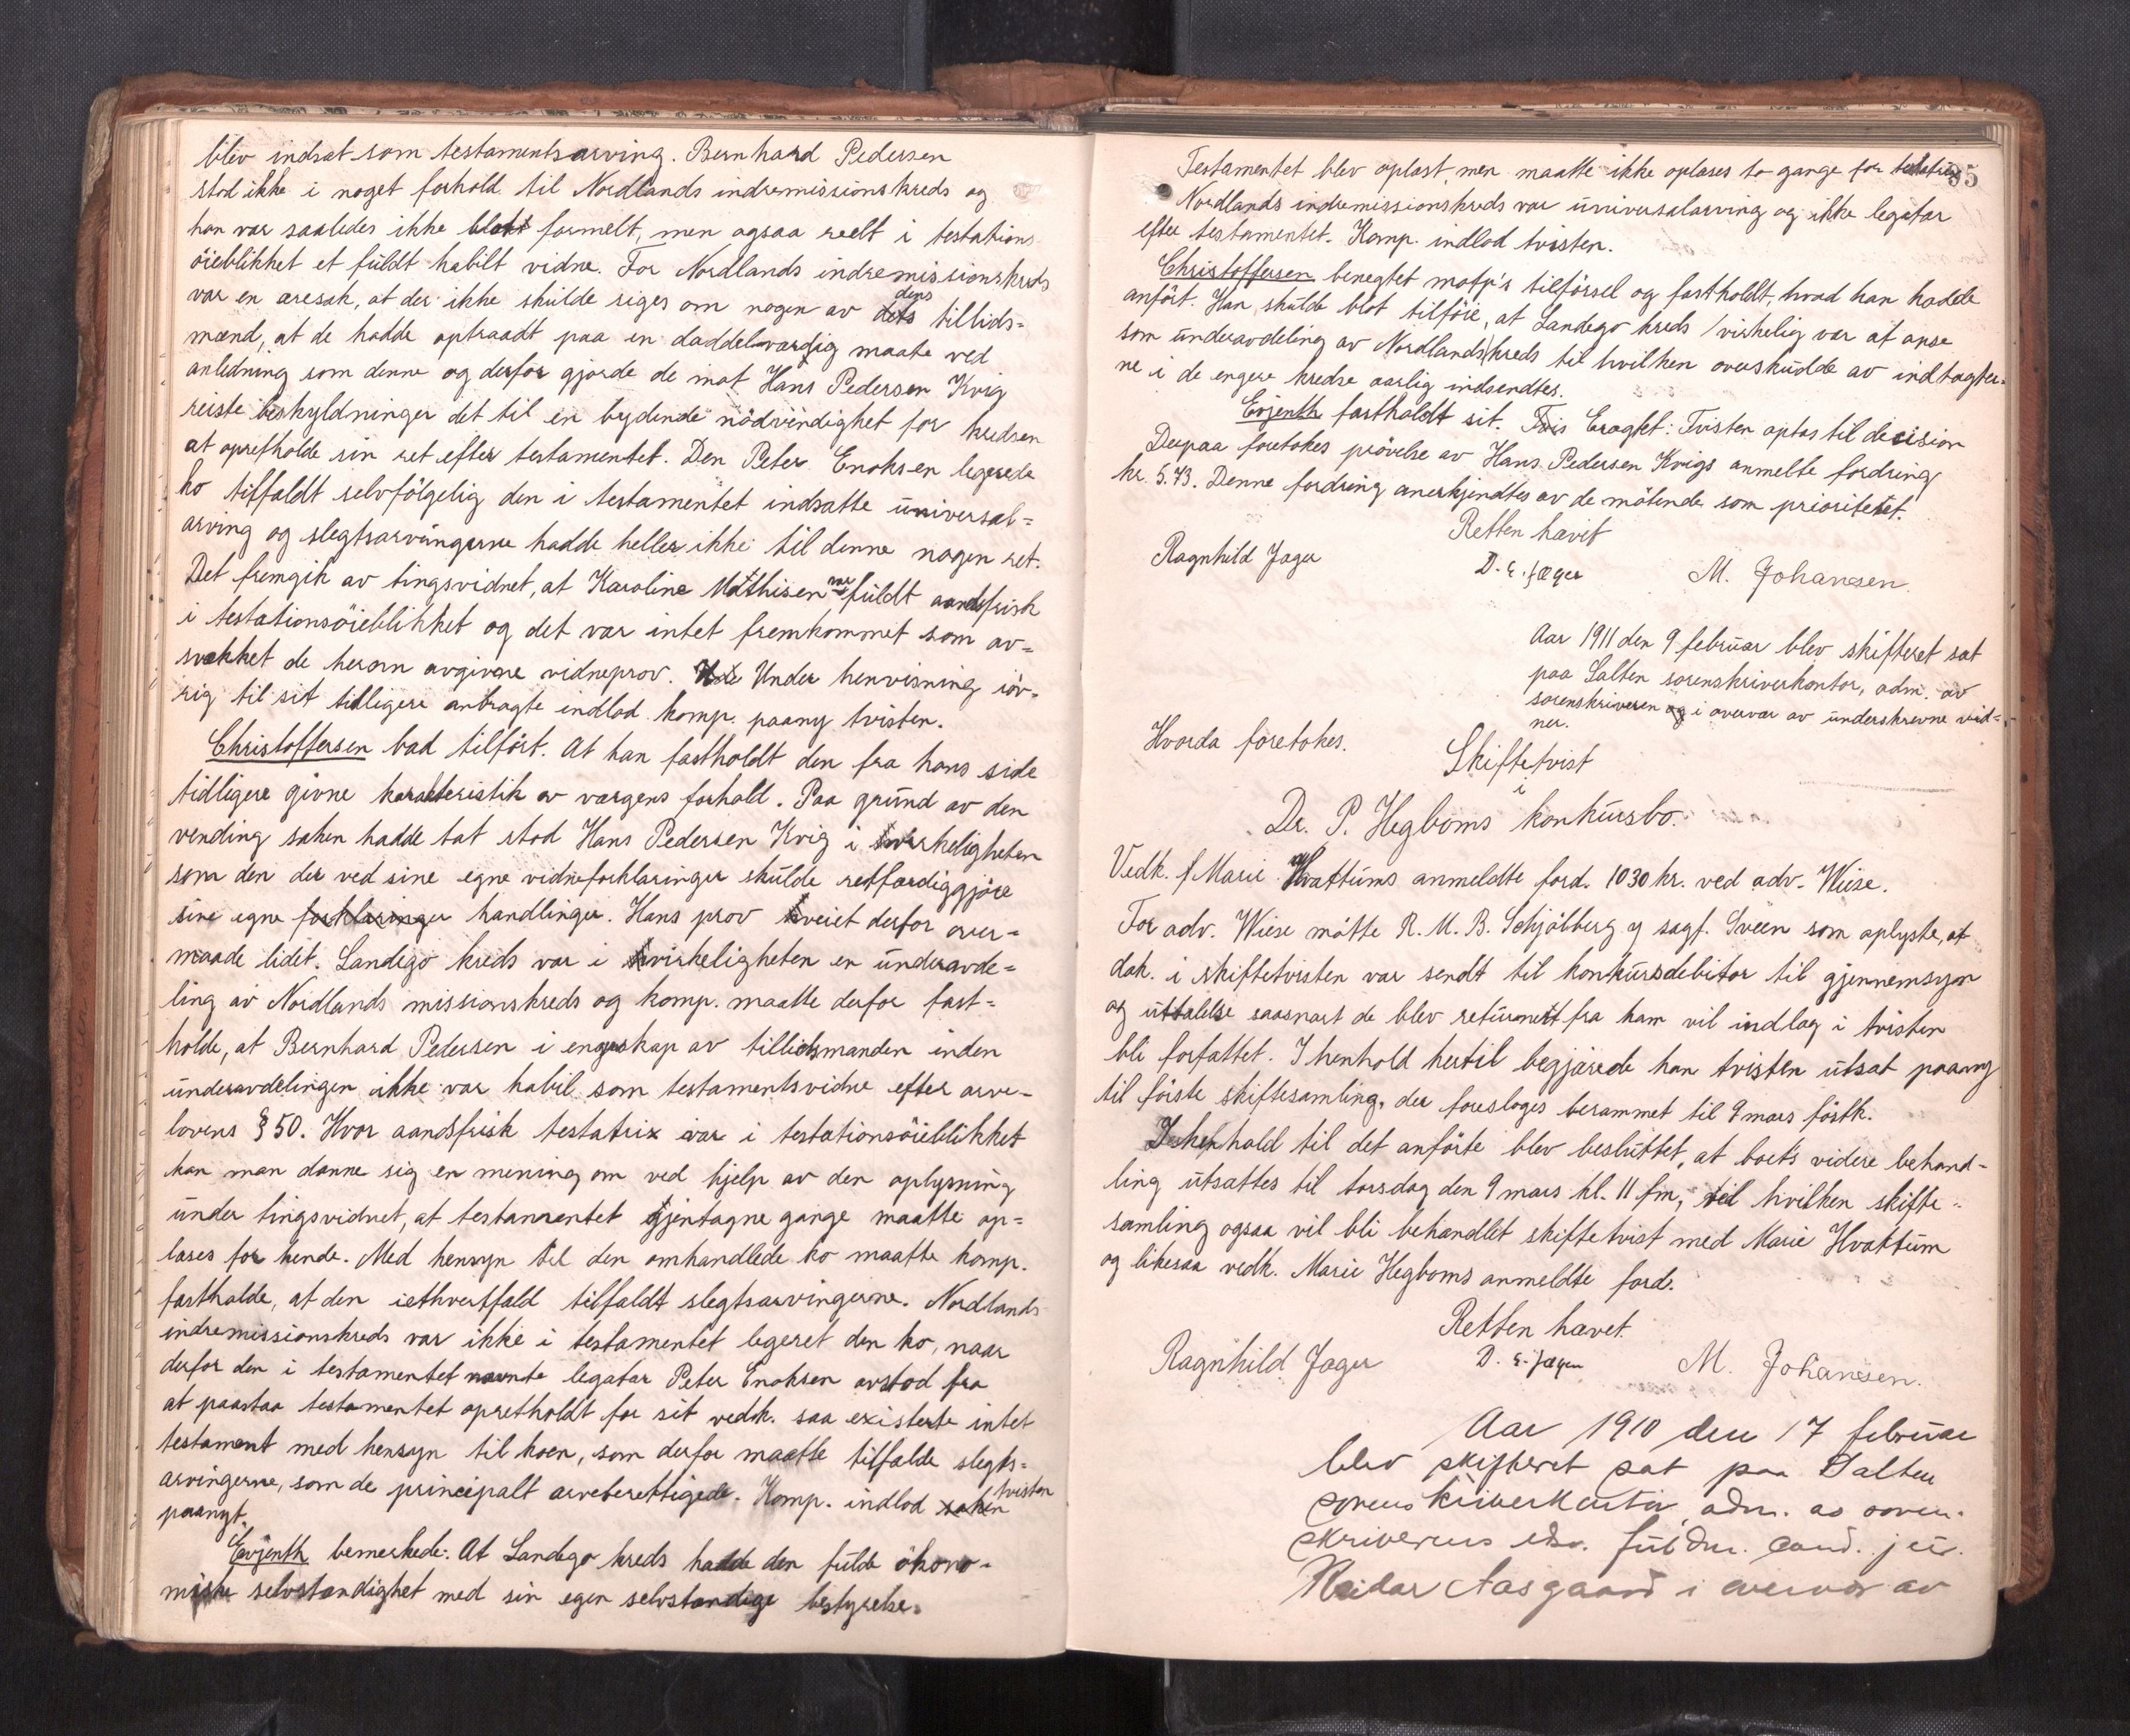 blev indsat som testamentsarving. Bernhard Pedersen
stod ikke i noget forhold til Nordlands indremissionskreds og
han var saaledes ikke blott formelt, men ogsaa reelt i testations
öieblikket et fuldt habilt vidne. For Nordlands indremissionskreds
var en æresak, at der ikke skulde siges om nogen av dets dens tillids-
mænd, at de hadde optraadt paa en daddelværdig maate ved
anledning som denne og derfor gjorde de mot Hans Pedersen Kvig
reiste beskyldninger det til en bydende nödvendighet for kredsen
at opretholde sin ret efter testamentet. Den Peter Enoksen legerede
ko tilfaldt selvfölgelig den i testamentet indsatte universal-
arving og slegtsarvingerne hadde heller ikke til denne nogen ret.
Det fremgik av tingsvidnet, at Karoline Mathisen var fuldt aandsfrisk
i testationsöieblikket og det var intet fremkommet som av-
svækket de herom avgivne vidneprov. Under henvisning iöv-
rig til sit tidligere anbragte indlod komp. paany tvisten.
Christoffersen bad tilfört. At han fastholdt den fra hans side
tidligere givne karakteristik av værgens forhold. Paa grund av den
vending saken hadde tat stod Hans Pedersen Kvig i virkeligheten
som den der ved sine egne vidneforklaringer skulde retfærdiggjöre
sine egne forklaringer handlinger. Hans prov veiet derfor over-
maade lidet. Landego kreds var i virkeligheten en underavde-
ling av Nordlands missionskreds og komp. maatte derfor fast-
holde, at Bernhard Pedersen i egenskap av tillidsmanden inden
underavdelingen ikke var habil som testamentsvidne efter arve-
lovens § 50. Hvor aandsfrisk testatrix var i testationsöieblikket
kan man danne sig en mening om ved hjelp av den oplysning
under tingsvidnet, at testamentet gjentagne gange maatte op-
læses for hende. Med hensyn til den omhandlede ko maatte komp.
fastholde, at den iethvertfald tilfaldt slegtsarvingerne. Nordlands
indremissionskreds var ikke i testamentet legeret den ko, naar
derfor den i testamentet nævnte legatar Peter Enoksen avstod fra
at paastaa testamentet opretholdt for sit vedk. saa existerte intet
testament med hensyn til koen, som derfor maatte tilfalde slegts-
arvingerne, som de principalt arveberettigede. Komp. indlod saken tvisten
paanyt.
Evjenth bemerkede: At Landego kreds hadde den fulde ökono-
miske selvstændighet med sin egen selvstændige bestyrelse.
35
Testamentet blev oplæst, men maatte ikke oplæses to gange for testatrix
Nordlands indremissionskreds var universalarving og ikke legatar
efter testamentet. Komp. indlod tvisten.
Christoffersen benegtet motp's tilförsel og fastholdt, hvad han hadde
anfört. Han skulde blot tilföie, at Landego kreds virkelig var at anse
som underavdeling av Nordlands kreds til hvilken overskudde av indtægter-
ne i de engere kredse aarlig indsendtes.
Evjenth fastholdt sit. Eragtet: Tvisten optas til decision
Derpaa foretokes prövelse av Hans Pedersen Kvigs anmeldte fordring
kr. 5.73. Denne fordring anerkjendtes av de mötende som prioritetet.
Retten hævit
Ragnhild Jæger D. E. Jæger M. Johansen.
Aar 1911 den 9 februar blev skifteret sat
paa Salten sorenskriverkontor, adm. av
sorenskriveren og i overvær av underskrevne vid-
ner.
Hvorda foretokes.
Skiftetvist
i
Dr. P. Hegboms konkursbo.
Vedk. f Marie Hvattums anmeldte ford. 1030 kr. ved adv. Wiese.
For adv. Wiese mötte R. M. B. Schjölberg v sagf. Sveen som oplyste, at
dok. i skiftetvisten var sendt til konkursdebitor til gjennemsyn
og uttalelse saasnart de blev returnert fra ham vil indlæg i tvisten
bli forfattet. I henhold hertil begjærede han tvisten utsat paany
til förste skiftesamling, der foresloges berammet til 9 mars förstk.
I henhold til det anförte blev besluttet, at boets videre behand-
ling utsattes til torsdag den 9 mars kl. 11 fm, til hvilken skifte-
samling ogsaa vil bli behandlet skiftetvist med Marie Hvattum
og likesaa vedk. Marie Hegboms anmeldte ford.
Retten hævet
Ragnhild Jæger D. E. Jæger M. Johansen.
Aar 1910 den 17 februar
blev skifteret sat paa Salten
sorenskriverkontor, adm. av soren-
skriverens edsv. fuldm. cand. jur.
Reidar Aasgaard i overvær av